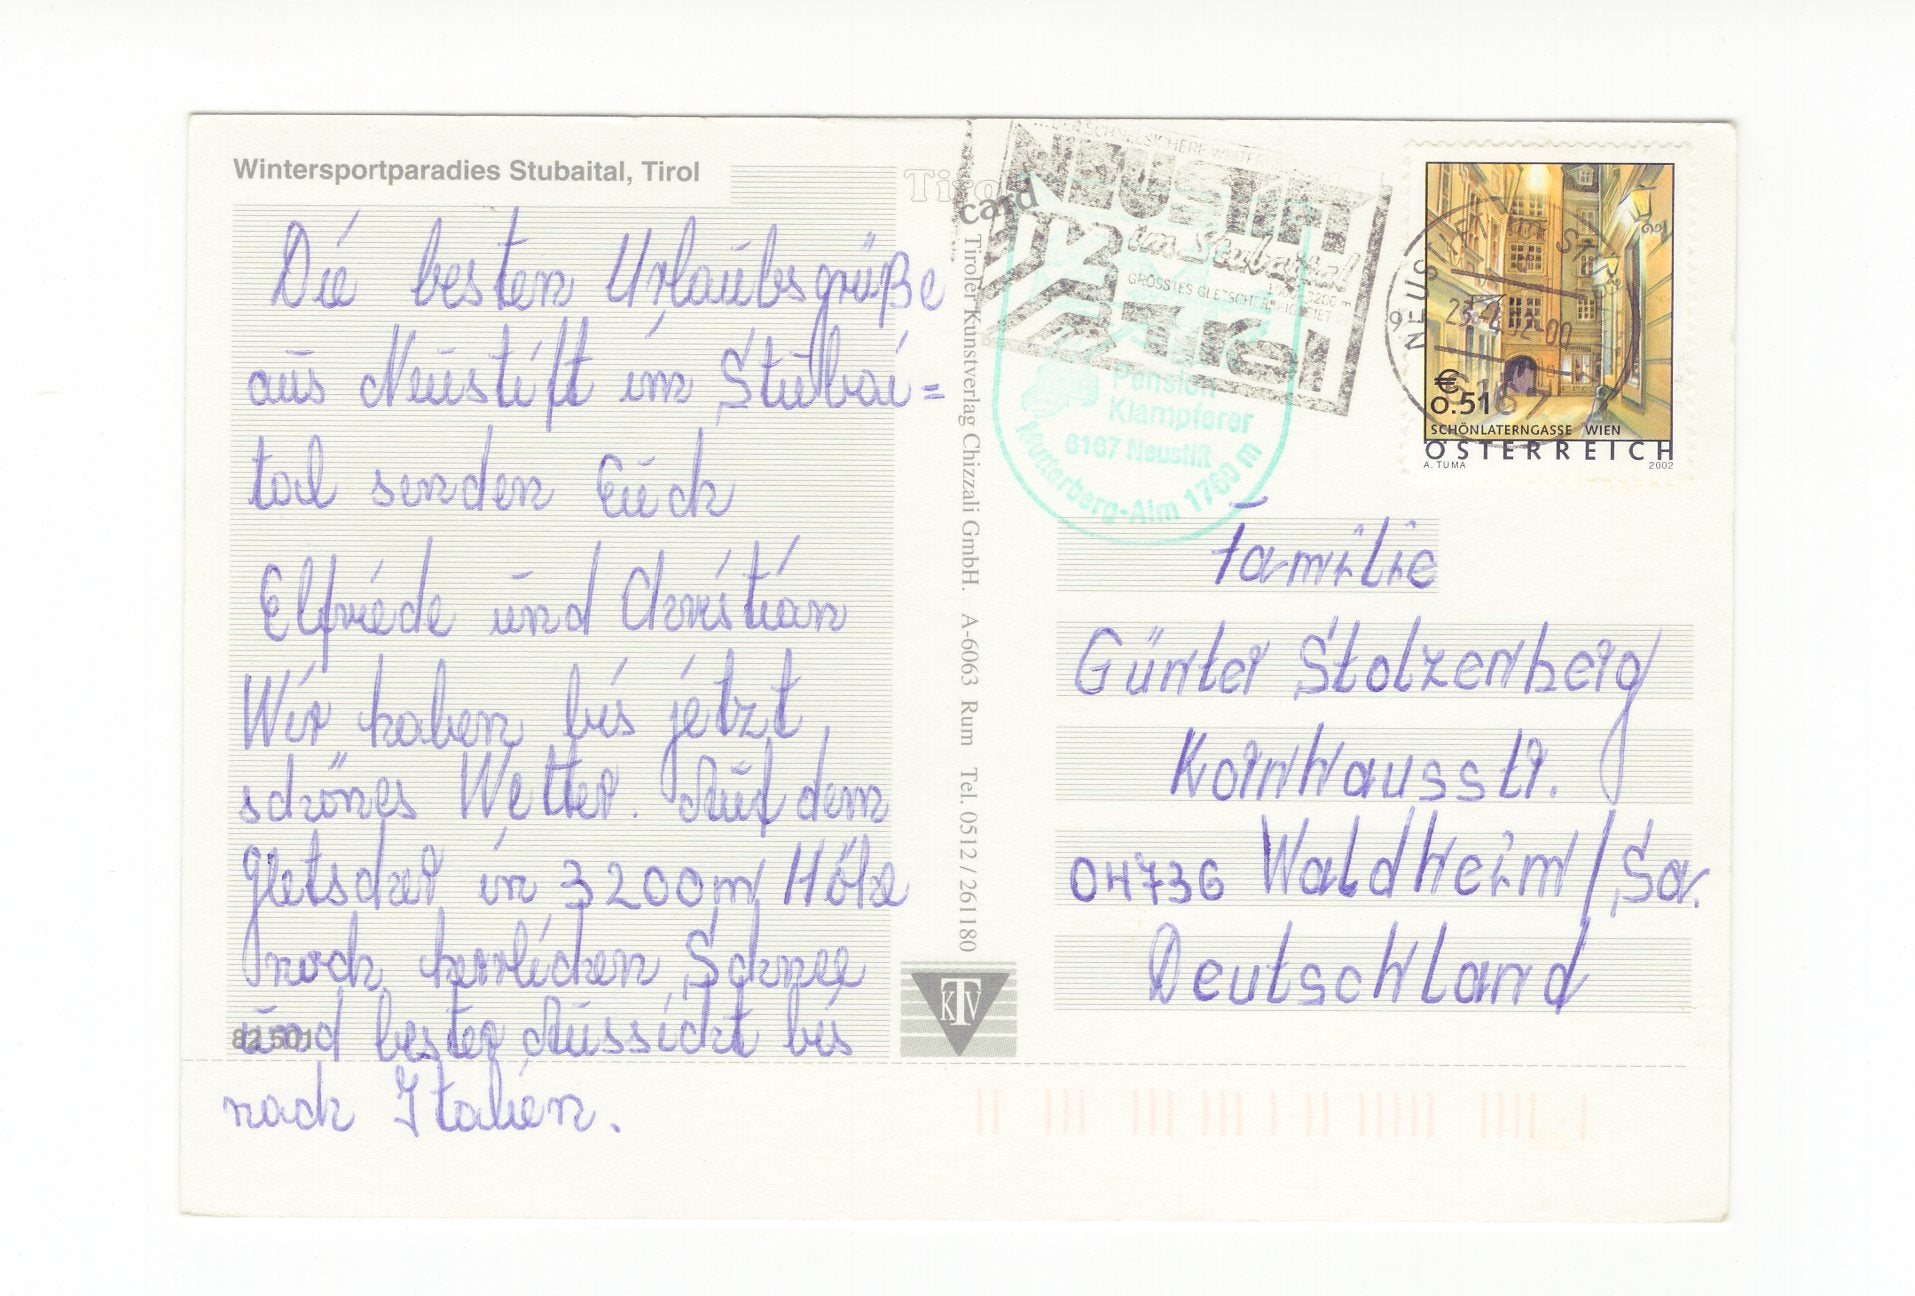 Wintersportparadies Stubaital, Tirol
Die besten Urlaubsgrüße
aus Neustift im Stubai=
tal senden Euch
Elfriede und Christian
Wir haben bis jetzt
schönes Wetter. Auf dem
Gletscher in 3200m Höhe
noch herrlichen Schnee
und bester Aussicht bis
nach Italien.
82 501
Tirol
card
Tiroler Kunstverlag Chizzali GmbH. A-6063 Rum Tel. 0512 / 261180
KTV
NEUSTIFT
im Stubaital
GRÖSSTES GLETSCHERSKIGEBIET
Tirol
Pension
Klampferer
6167 Neustift
Mutterberg-Alm 1760 m
6167
€
0.51
SCHÖNLATERNGASSE WIEN
ÖSTERREICH
A. TUMA 2002
Familie
Günter Stolzenberg
Kornhausstr.
04736 Waldheim/Sa.
Deutschland